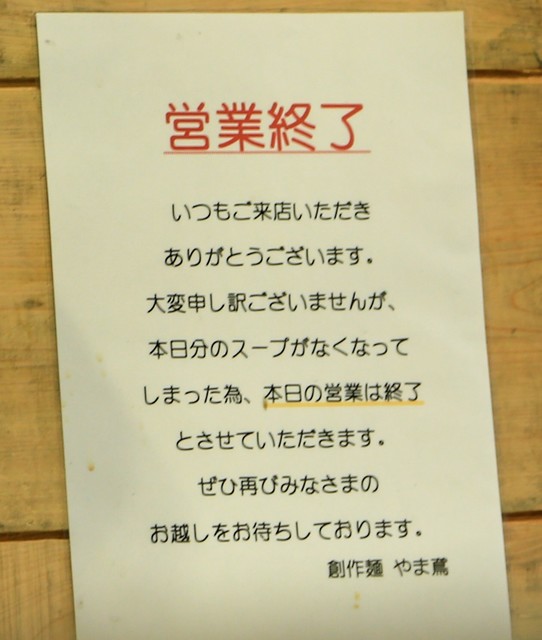 営業終了
いつもご来店いただき
ありがとうございます。
大変申し訳ございませんが、
本日分のスープがなくなって
しまった為、本日の営業は終了
とさせていただきます。
ぜひ再びみなさまの
お越しをお待ちしております。
創作麺 やま鳶